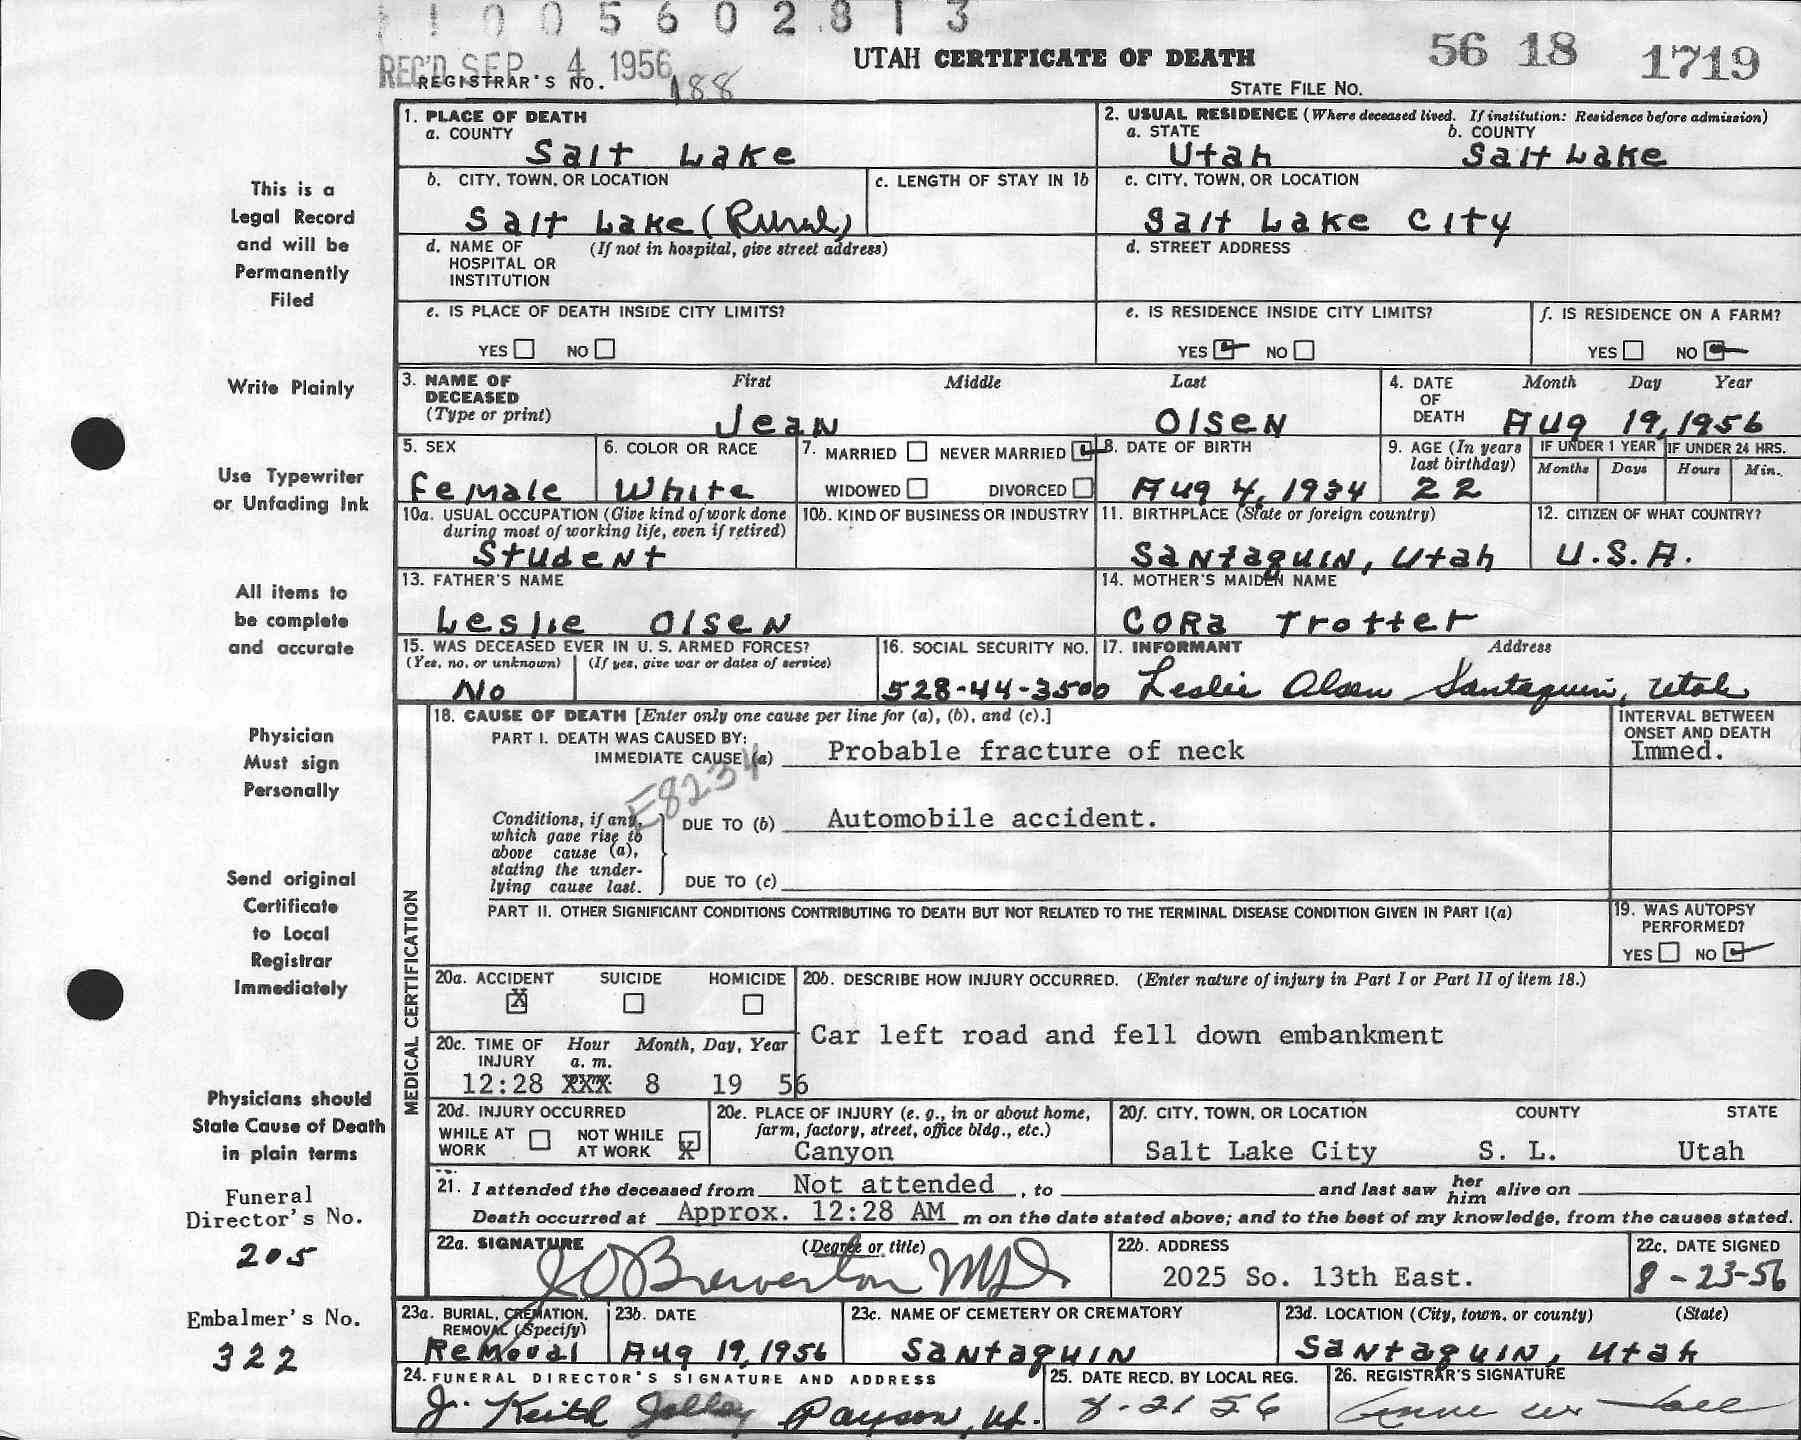 1005602813
REC'D SEP 4 1956
REGISTRAR'S NO. 188
UTAH CERTIFICATE OF DEATH
STATE FILE NO.
56 18 1719
This is a
Legal Record
and will be
Permanently
Filed
Write Plainly
Use Typewriter
or Unfading Ink
All items to
be complete
and accurate
Physician
Must sign
Personally
Send original
Certificate
to Local
Registrar
Immediately
Physicians should
State Cause of Death
in plain terms
Funeral
Director's No.
205
Embalmer's No.
322
1. PLACE OF DEATH
a. COUNTY
Salt Lake
2. USUAL RESIDENCE (Where deceased lived. If institution: Residence before admission)
a. STATE b. COUNTY
Utah Salt Lake
b. CITY, TOWN, OR LOCATION
Salt Lake (Rural)
c. LENGTH OF STAY IN 1b
c. CITY, TOWN, OR LOCATION
Salt Lake City
d. NAME OF (If not in hospital, give street address)
HOSPITAL OR
INSTITUTION
d. STREET ADDRESS
e. IS PLACE OF DEATH INSIDE CITY LIMITS?
YES NO
e. IS RESIDENCE INSIDE CITY LIMITS?
YES NO
f. IS RESIDENCE ON A FARM?
YES NO
3. NAME OF First Middle Last
DECEASED
(Type or print)
Jean Olsen
4. DATE Month Day Year
OF
DEATH Aug 19, 1956
5. SEX
Female
6. COLOR OR RACE
White
7. MARRIED NEVER MARRIED
WIDOWED DIVORCED
8. DATE OF BIRTH
Aug 4, 1934
9. AGE (In years
last birthday)
22
IF UNDER 1 YEAR IF UNDER 24 HRS.
Months Days Hours Min.
10a. USUAL OCCUPATION (Give kind of work done
during most of working life, even if retired)
Student
10b. KIND OF BUSINESS OR INDUSTRY
11. BIRTHPLACE (State or foreign country)
Santaquin, Utah
12. CITIZEN OF WHAT COUNTRY?
U.S.A.
13. FATHER'S NAME
Leslie Olsen
14. MOTHER'S MAIDEN NAME
Cora Trotter
15. WAS DECEASED EVER IN U. S. ARMED FORCES?
(Yes, no, or unknown) (If yes, give war or dates of service)
No
16. SOCIAL SECURITY NO.
528-44-3500
17. INFORMANT Address
Leslie Olsen Santaquin, Utah
MEDICAL CERTIFICATION
18. CAUSE OF DEATH [Enter only one cause per line for (a), (b), and (c).]
PART I. DEATH WAS CAUSED BY:
IMMEDIATE CAUSE (a) Probable fracture of neck
INTERVAL BETWEEN
ONSET AND DEATH
Immed.
E8234
Conditions, if any,
which gave rise to
above cause (a),
stating the under-
lying cause last.
DUE TO (b) Automobile accident.
DUE TO (c)
PART II. OTHER SIGNIFICANT CONDITIONS CONTRIBUTING TO DEATH BUT NOT RELATED TO THE TERMINAL DISEASE CONDITION GIVEN IN PART I(a)
19. WAS AUTOPSY
PERFORMED?
YES NO
20a. ACCIDENT SUICIDE HOMICIDE
X
20b. DESCRIBE HOW INJURY OCCURRED. (Enter nature of injury in Part I or Part II of item 18.)
Car left road and fell down embankment
20c. TIME OF Hour Month, Day, Year
INJURY a. m.
12:28 XXX 8 19 56
20d. INJURY OCCURRED
WHILE AT NOT WHILE
WORK AT WORK X
20e. PLACE OF INJURY (e. g., in or about home,
farm, factory, street, office bldg., etc.)
Canyon
20f. CITY, TOWN, OR LOCATION COUNTY STATE
Salt Lake City S. L. Utah
21. I attended the deceased from Not attended, to and last saw her him alive on
Death occurred at Approx. 12:28 AM m on the date stated above; and to the best of my knowledge, from the causes stated.
22a. SIGNATURE (Degree or title)
J O Brewerton MD
22b. ADDRESS
2025 So. 13th East.
22c. DATE SIGNED
8-23-56
23a. BURIAL, CREMATION,
REMOVAL (Specify)
Removal
23b. DATE
Aug 19, 1956
23c. NAME OF CEMETERY OR CREMATORY
Santaquin
23d. LOCATION (City, town, or county) (State)
Santaquin, Utah
24. FUNERAL DIRECTOR'S SIGNATURE AND ADDRESS
J. Keith Jolley Payson, Ut.
25. DATE RECD. BY LOCAL REG.
8-21 56
26. REGISTRAR'S SIGNATURE